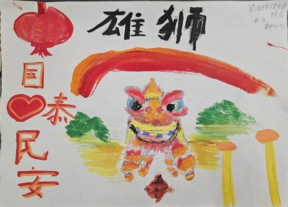 雄狮
国泰
民安